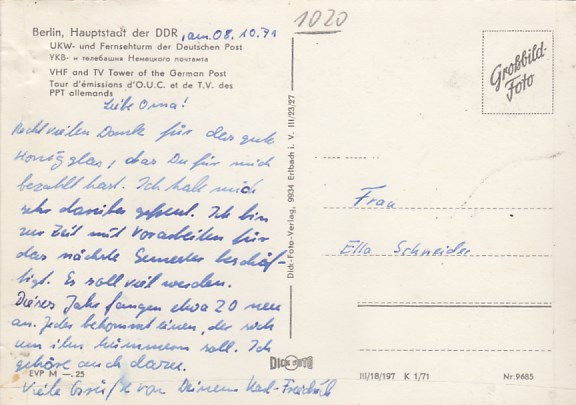 1020
Berlin, Hauptstadt der DDR, am 08.10.71
UKW- und Fernsehturm der Deutschen Post
УКВ- и телебашня Немецкого почтамта
VHF and TV Tower of the German Post
Tour d'émissions d'O.U.C. et de T.V. des
PPT allemands
Liebe Oma!
Recht vielen Dank für das gute
Honigglas, das Du für mich
bezahlt hast. Ich habe mich
sehr darüber gefreut. Ich bin
zur Zeit mit Vorarbeiten für
das nächste Semester beschäf-
tigt. Es soll viel werden.
Dieses Jahr fangen etwa 20 neu
an. Jeder bekommt einen, der sich
um ihn kümmern soll. Ich
gehöre auch dazu.
EVP M —.25
Viele Grüße von Deinem Karl-Friedrich
Dick-Foto-Verlag, 9934 Erlbach i. V. III/23/27
DICK FOTO
Großbild-
Foto
Frau
Ella Schneider
III/18/197 K 1/71
Nr. 9685